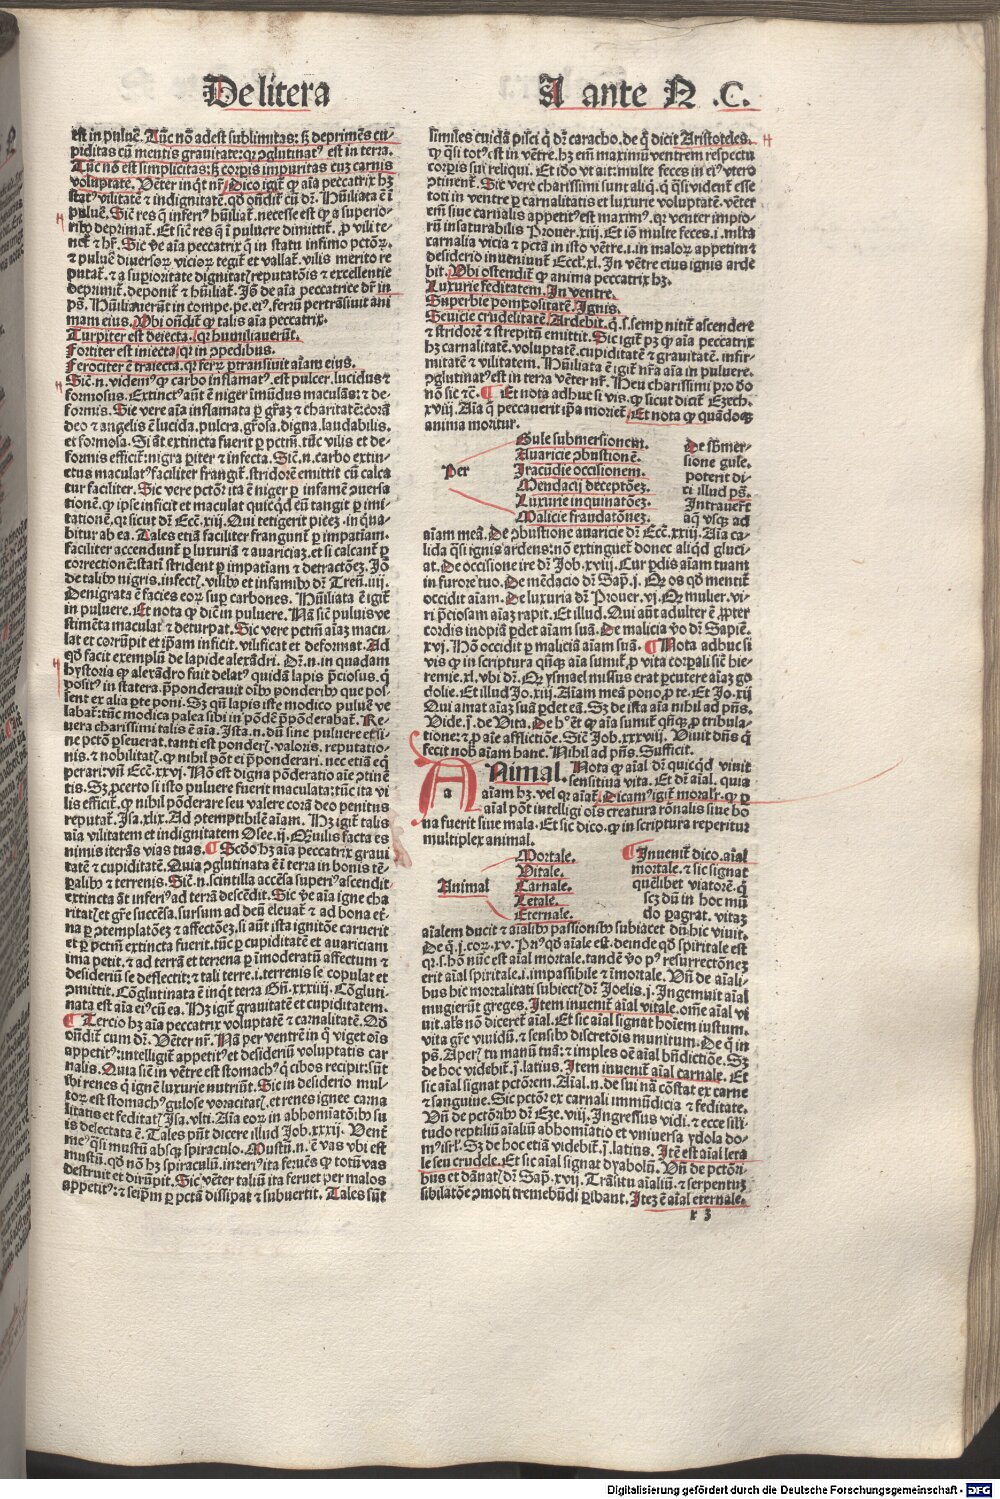 De litera A ante N .C.
est in puluē. Tūc nō adest sublimitas: sꝫ deprimēs cu-
piditas cū mentis grauitate: qꝛ ꝯglutinatꝰ est in terra.
Tūc nō est simplicitas: sꝫ corpis impuritas cuꝫ carnis
voluptate. Vēter inqͭ nr̄. Dico igit̄ ꝙ aīa peccatrix hꝫ
statꝰ vilitatē ⁊ indignitatē. qd̓ oñdit̄ cū dr̄. Hūiliata ē ī
puluē. Sic̄ res q̄ inferiꝰ hūiliat̄. necesse est ꝙ a superio-
ribꝰ deprimat̄. Et sic̄ res q̄ ī puluere dimittit̄. ꝓ vili te-
net̄ ⁊ hr̄. Sic v̄e aīa peccatrix q̄ in statu infimo pctōꝝ.
⁊ puluē diuersoꝝ vicioꝝ tegit̄ et vallat̄. vilis merito re
putat̄. ⁊ a supioritate dignitatꝭ reputatōnis ⁊ excellentie
deprimit̄. deponit̄ ⁊ hūiliat̄. Iō de aīa peccatrice dr̄ in
pꝰ. Hūiliauerūt in compe. pe. eiꝰ. ferrū pertrāsiuit ani
mam eius. Vbi oñdit̄ ꝙ talis aīa peccatrix.
Turpiter est deiecta. qꝛ humiliauerūt.
Fortiter est iniecta. qꝛ in ꝯpedibus.
Ferociter ē traiecta. qꝛ ferrꝫ ptransiuit aīam eius.
Sic̄.n. videmꝰ ꝙ carbo inflamatꝰ. est pulcer. lucidus ⁊
formosus. Extinctꝰ aūt ē niger īmūdus maculās: ⁊ de-
formis. Sic vere aīa inflamata p gr̄aꝫ ⁊ charitatē: corā
deo ⁊ angelis ē lucida. pulcra. gr̄osa. digna. laudabilis.
et formosa. Si āt extincta fuerit p pctm̄. tūc vilis et de-
formis efficit̄: nigra piter ⁊ infecta. Sic̄.n. carbo extin-
ctus maculatꝰ faciliter frangit̄. stridorē emittit cū calca
tur faciliter. Sic vere pctōꝛ ita ē niger p infamē ꝯuersa
tionē. ꝙ ipse inficit et maculat quicqͥd eū tangit p imi-
tationē. qꝛ sicut dr̄ Eccī. xiij. Qui tetigerit piceꝫ. inqͥna-
bitur ab ea. Tales etiā faciliter frangunt̄ p impatiam.
faciliter accendunt̄ p luxuriā ⁊ auariciaꝫ. et si calcant̄ p
correctionē: statī strident p impatiam ⁊ detractōeꝫ. Iō
de talibꝰ nigris. infectꝭ. vilibꝰ et infamibꝰ dr̄ Tren̄. iiij.
Denigrata ē facies eoꝝ sup carbones. Hūiliata ē igit̄
in puluere. Et nota ꝙ dic̄ in puluere. Nā sic̄ puluis ve
stimēta maculat ⁊ deturpat. Sic vere pctm̄ aīaꝫ macu-
lat et corrūpit et ip̄am inficit. vilificat et deformat. Ad
qd̓ facit exemplū de lapide alexādri. Dr̄.n. in quadam
hystoria ꝙ alexādro fuit delatꝰ quidā lapis p̄ciosus. q̄
positꝰ in statera. p̄ponderauit oībꝰ ponderibꝰ que pos-
sent ex alia pte poni. Sꝫ qn̄ lapis iste modico puluē ve
labat̄: tūc modica palea sibi in pōdē p̄pōderabat̄. Re-
vera charissimi talis ē aīa. Ista.n. dū sine puluere et si-
ne pctō pseuerat. tanti est ponderꝭ. valoris. reputatio-
nis. ⁊ nobilitatꝭ. ꝙ nihil pōt ei p̄ponderari. nec etiā eq̄
perari: vn̄ Ecc̄. xxvj. Nō est digna pōderatio aīe ꝯtinē
tis. Sꝫ ꝓcerto si isto puluere fuerit maculata: tūc ita vi
lis efficit̄. ꝙ nihil pōderare seu valere corā deo penitus
reputat̄. Isa. xlix. Ad ꝯtemptibilē aīam. Hꝫ igit̄ talis
aīa vilitatem et indignitatem Osee. ij. Qͣuilis facta es
nimis iterās vias tuas. ¶ Scd̓o hꝫ aīa peccatrix graui
tatē ⁊ cupiditatē. Quia ꝯglutinata ē ī terra in bonis tē-
palibꝰ ⁊ terrenis. Sic̄.n. scintilla accēsa superiꝰ ascendit
extincta āt inferiꝰ ad terrā descēdit. Sic v̄e aīa igne cha
ritatꝭ et gr̄e succēsa. sursum ad deū eleuat̄ ⁊ ad bona et̄-
na p ꝯtemplatōeꝫ ⁊ affectōeꝫ. si aūt ista ignitōe caruerit
et p pctm̄ extincta fuerit. tūc p cupiditatē et auariciam
ima petit. ⁊ ad terrā et terrena p īmoderatū affectum ⁊
desideriū se deflectit: ⁊ tali terre.i. terrenis se copulat et
ꝯmittit. Cōglutinata ē inqͭ terra Gn̄. xxxiiij. Cōgluti-
nata est aīa eiꝰ cū ea. Hꝫ igit̄ grauitatē et cupiditatem.
¶ Tercio hꝫ aīa peccatrix voluptatē ⁊ carnalitatē. Qd̓
oñdit̄ cum dr̄. Vēter nr̄. Nā per ventrem in q̄ viget oīs
appetitꝰ: intelligit̄ appetitꝰ et desideriū voluptatis car
nalis. Quia sic̄ in vētre est stomachꝰ q̄ cibos recipit: sūt
ibi renes q̄ ignē luxurie nutriūt. Sic in desiderio mul-
toꝝ est stomachꝰ gulose voracitatꝭ. et renes ignee carna
litatis et feditatꝭ Isa. vlti. Aīa eoꝝ in abhomiatōibꝰ su
is delectata ē. Tales pn̄t dicere illud Job. xxxij. Vent̄
meꝰ qͣsi mustū absqꝫ spiraculo. Mustū.n. ē vas vbi est
mustū. qd̓ nō hꝫ spiraculū. interiꝰ ita feruēs ꝙ totū vas
destruit et dirūpit. Sic vēter taliū ita feruet per malos
appetitꝰ: ⁊ seip̄m p pctā dissipat ⁊ subuertit. Tales sūt
similes cuidā pisci q̄ dr̄ caracho. de q̄ dicit Aristoteles.
ꝙ qͣsi totꝰ est in vētre. hꝫ em̄ maximū ventrem respectu
corpis sui reliqui. Et iō vt ait: multe feces in eiꝰ vtero
ꝯtinent̄. Sic vere charissimi sunt aliq̄. q̄ qͣsi vident̄ esse
toti in ventre p carnalitatis et luxurie voluptatē. vētet
em̄ siue carnalis appetitꝰ est maximꝰ. qꝛ venter impio-
rū insaturabilis Prouer. xiij. Et iō multe feces.i. mlta
carnalia vicia ⁊ pctā in isto vētre.i. in maloꝝ appetitu ⁊
desiderio inueniunt̄ Eccī. xl. In vētre eius ignis arde
bit. Vbi ostendit̄ ꝙ anima peccatrix hꝫ.
Luxurie feditatem. In ventre.
Superbie pomꝑositatē. Ignis.
Seuicie crudelitatē. Ardebit. q̄.s. semp nitit̄ ascendere
⁊ stridorē ⁊ strepitū emittit. Sic igit̄ pꝫ ꝙ aīa peccatrix
hꝫ carnalitatē. voluptatē. cupiditatē ⁊ grauitatē. infir-
mitatē ⁊ vilitatem. Hūiliata ē igit̄ nr̄a aīa in puluere.
ꝯglutinatꝰ est in terra vēter nr̄. Heu charissimi pro do
nō sic ⁊c̄. ¶ Et nota adhuc si vis. ꝙ sicut dicit̄ Ezech.
xviij. Aīa q̄ peccauerit ip̄a moriet̄. Et nota ꝙ quādoqꝫ
anima moritur.
Per
Gule submersionem.
Auaricie ꝯbustionē.
Iracūdie occisionem.
Mendacij deceptōeꝫ.
Luxurie inquinatōeꝫ.
Malicie fraudatōneꝫ.
De sb̄mer-
sione gule.
poterit di-
ci illud pꝰ.
Intrauert̄
aq̄ vsqꝫ ad
aīam meā. De ꝯbustione auaricie dr̄ Eccī. xxiij. Aīa ca-
lida qͣsi ignis ardens: nō extinguet̄ donec aliqͥd gluci-
at. De occisione ire dr̄ Job. xviij. Cur pdis aīam tuam
in furore tuo. De mēdacio dr̄ Sap̄. j. Os qd̓ mentit̄
occidit aīam. De luxuria dr̄ Prouer. vj. Qꝛ mulier. vi-
ri p̄ciosam aīaꝫ rapit. Et illud. Qui aūt adulter ē ꝓpter
cordis inopiā pdet aīam suā. De malicia v̓o dr̄ Sapiē.
xvi. Hō occidit p maliciā aīam suā. ¶ Nota adhuc si
vis ꝙ in scriptura qn̄qꝫ aīa sumit̄ ꝓ vita corpali sic̄ hie-
remie. xl. vbi dr̄. Qꝛ ysmael missus erat pcutere aīaꝫ go
dolie. Et illud Jo. xiij. Aīam meā pono ꝓ te. Et Jo. xij
Qui amat aīaꝫ suā pdet eā. Sꝫ de ista aīa nihil ad pn̄s.
Vide. j̄. de Vita. De hͦ ēt ꝙ aīa sumit̄ qn̄qꝫ ꝓ tribula-
tione: ⁊ ꝓ aīe afflictiōe. Sic̄ Job. xxxviij. Viuit dn̄s q̄
fecit nob̄ aīam hanc. Nihil ad pn̄s. Sufficit.
ANimal. Nota ꝙ aīal dr̄ quicqͥd viuit
sensitiua vita. Et dr̄ aīal. quia
aīam hꝫ. vel qꝛ aīat̄. Dicamꝰ igit̄ moralr̄. ꝙ p
aīal pōt intelligi oīs creatura rōnalis siue bo
na fuerit siue mala. Et sic dico. ꝙ in scriptura reperitur
multiplex animal.
Animal
Mortale.
Vitale.
Carnale.
Letale.
Eternale.
¶ Inuenit̄ dico. aīal
mortale. ⁊ sic signat
quēlibet viatorē. q̄
scꝫ dū in hoc mū
do pagrat. vitaꝫ
aīalem ducit ⁊ aīalibꝰ passionibꝰ subiacet dū hic viuit.
De q̄. j. coꝝ. xv. Priꝰ qd̓ aīale est. deinde qd̓ spiritale est
qꝛ.s. hō nūc est aīal mortale. tandē v̓o pꝰ resurrectōneꝫ
erit aīal spiritale.i. impassibile ⁊ īmortale. Vn̄ de aīali-
bus hic mortalitati subiectꝭ dr̄ Joelis. j. Ingemuit aīal
mugierūt greges. Item inuenit̄ aīal vitale. om̄e aīal vi
uit. als̄ nō diceret̄ aīal. Et sic aīal signat hoīem iustum.
vita gr̄e viuidū. ⁊ sensibꝰ discretōis munitum. De q̄ in
pꝰ. Aperꝭ tu manū tuā: ⁊ imples oē aīal bn̄dictiōe. Sꝫ
de hoc videbit̄. j̄. latius. Item inuenit̄ aīal carnale. Et
sic aīal signat pctōrem. Aīal.n. de sui nā cōstat ex carne
⁊ sanguine. Sic pctōꝛ ex carnali immūdicia ⁊ feditate.
Vn̄ de pctōribꝰ dr̄ Eze. viij. Ingressus vidi. ⁊ ecce sili-
tudo reptiliū aīaliū abhomiatio et vniuersa ydola do-
mꝰ isrl̄. Sꝫ de hoc etiā videbit̄. j̄. latius. Itē est aīal leta
le seu crudele. Et sic aīal signat dyabolū. Vn̄ de pctōri-
bus et dānatꝭ dr̄ Sap̄. xvij. Trāsitu aīaliū. ⁊ serpentuꝫ
sibilatōe ꝯmoti tremebūdi pibant. Iteꝫ ē aīal eternale.
r 3
Digitalisierung gefördert durch die Deutsche Forschungsgemeinschaft - DFG